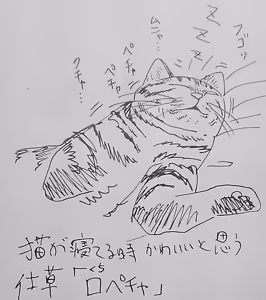 フゴッ
ZZZ
ムニャ…
ペチャ
ペチャ
クチャ…
猫が寝てる時かわいいと思う
仕草「口ペチャ」
くち